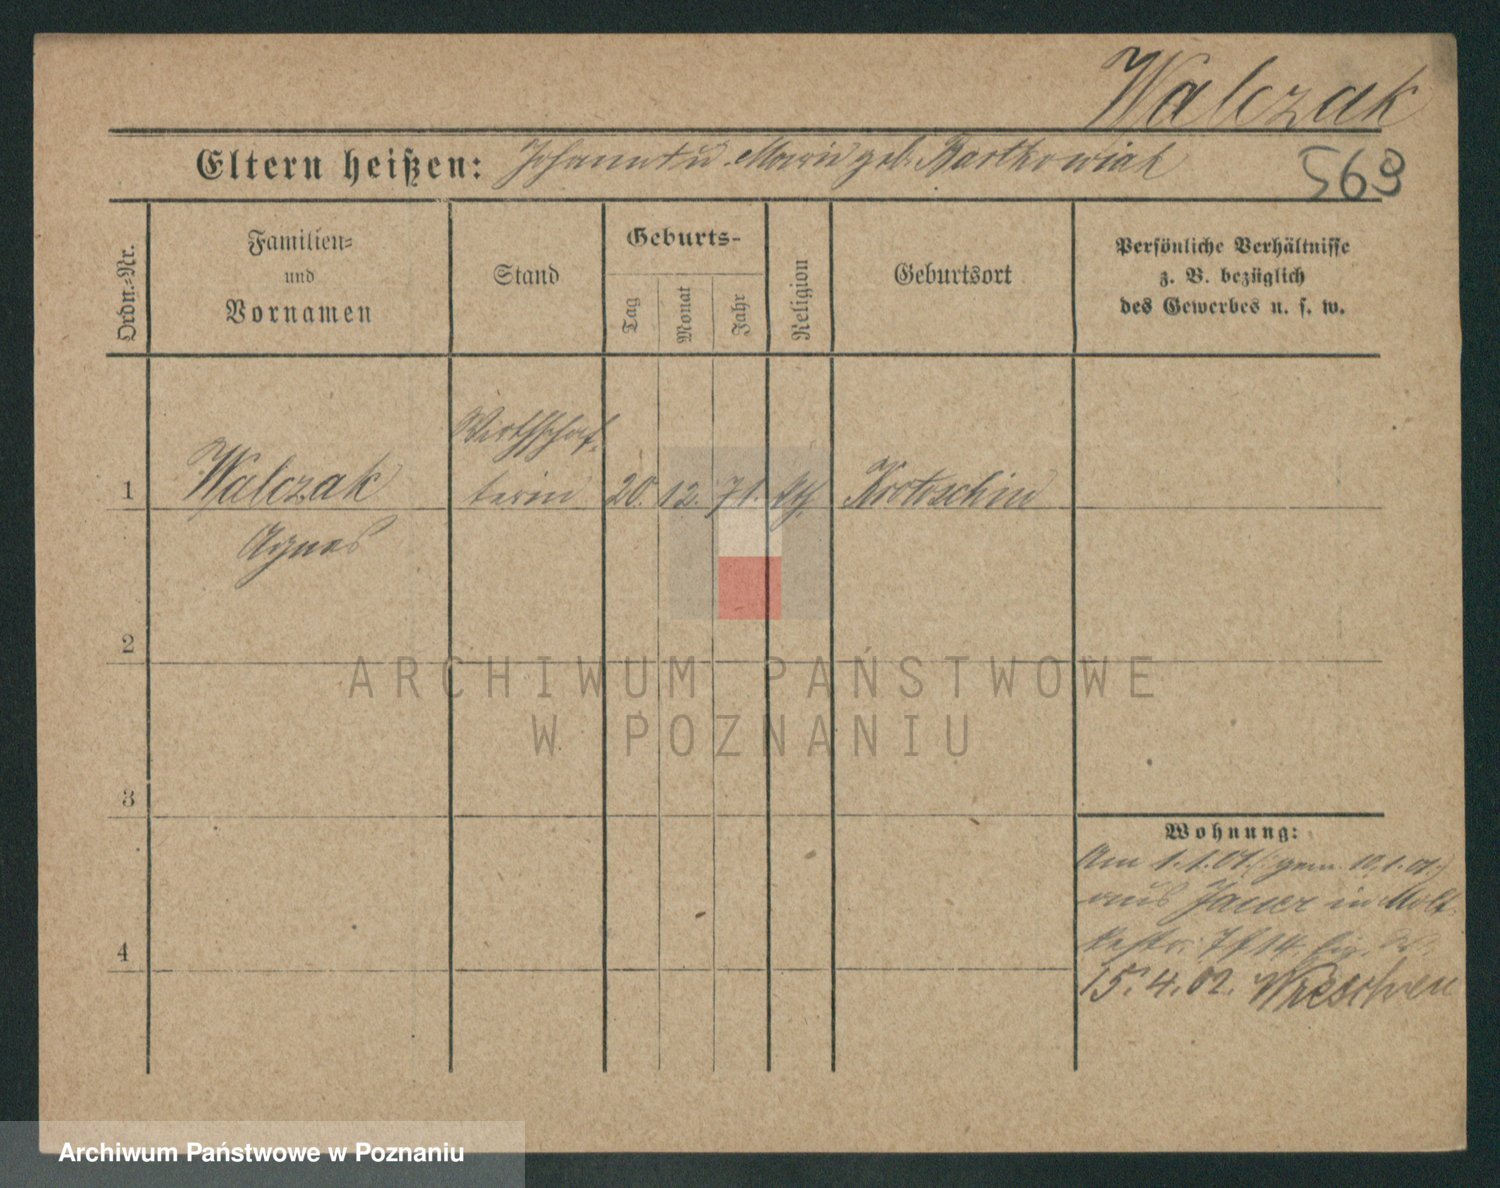 Walczak
Eltern heißen: Johann u Marie geb. Bartkowiak
569
Ordn.-Nr.
Familien- und Vornamen
Stand
Geburts-
Tag
Monat
Jahr
Religion
Geburtsort
Persönliche Verhältnisse
z. B. bezüglich
des Gewerbes u. s. w.
Wirthschaf-
1 Walczak terin 20. 12. 71. kth Krotoschin
Agnes
2
3
4
Wohnung:
Am 1.1.01 (gem. 10.1.01.)
aus Jauer in Molt
kestr. 7 b 14.
15.4.02. Wreschen
ARCHIWUM PAŃSTWOWE
W POZNANIU
Archiwum Państwowe w Poznaniu